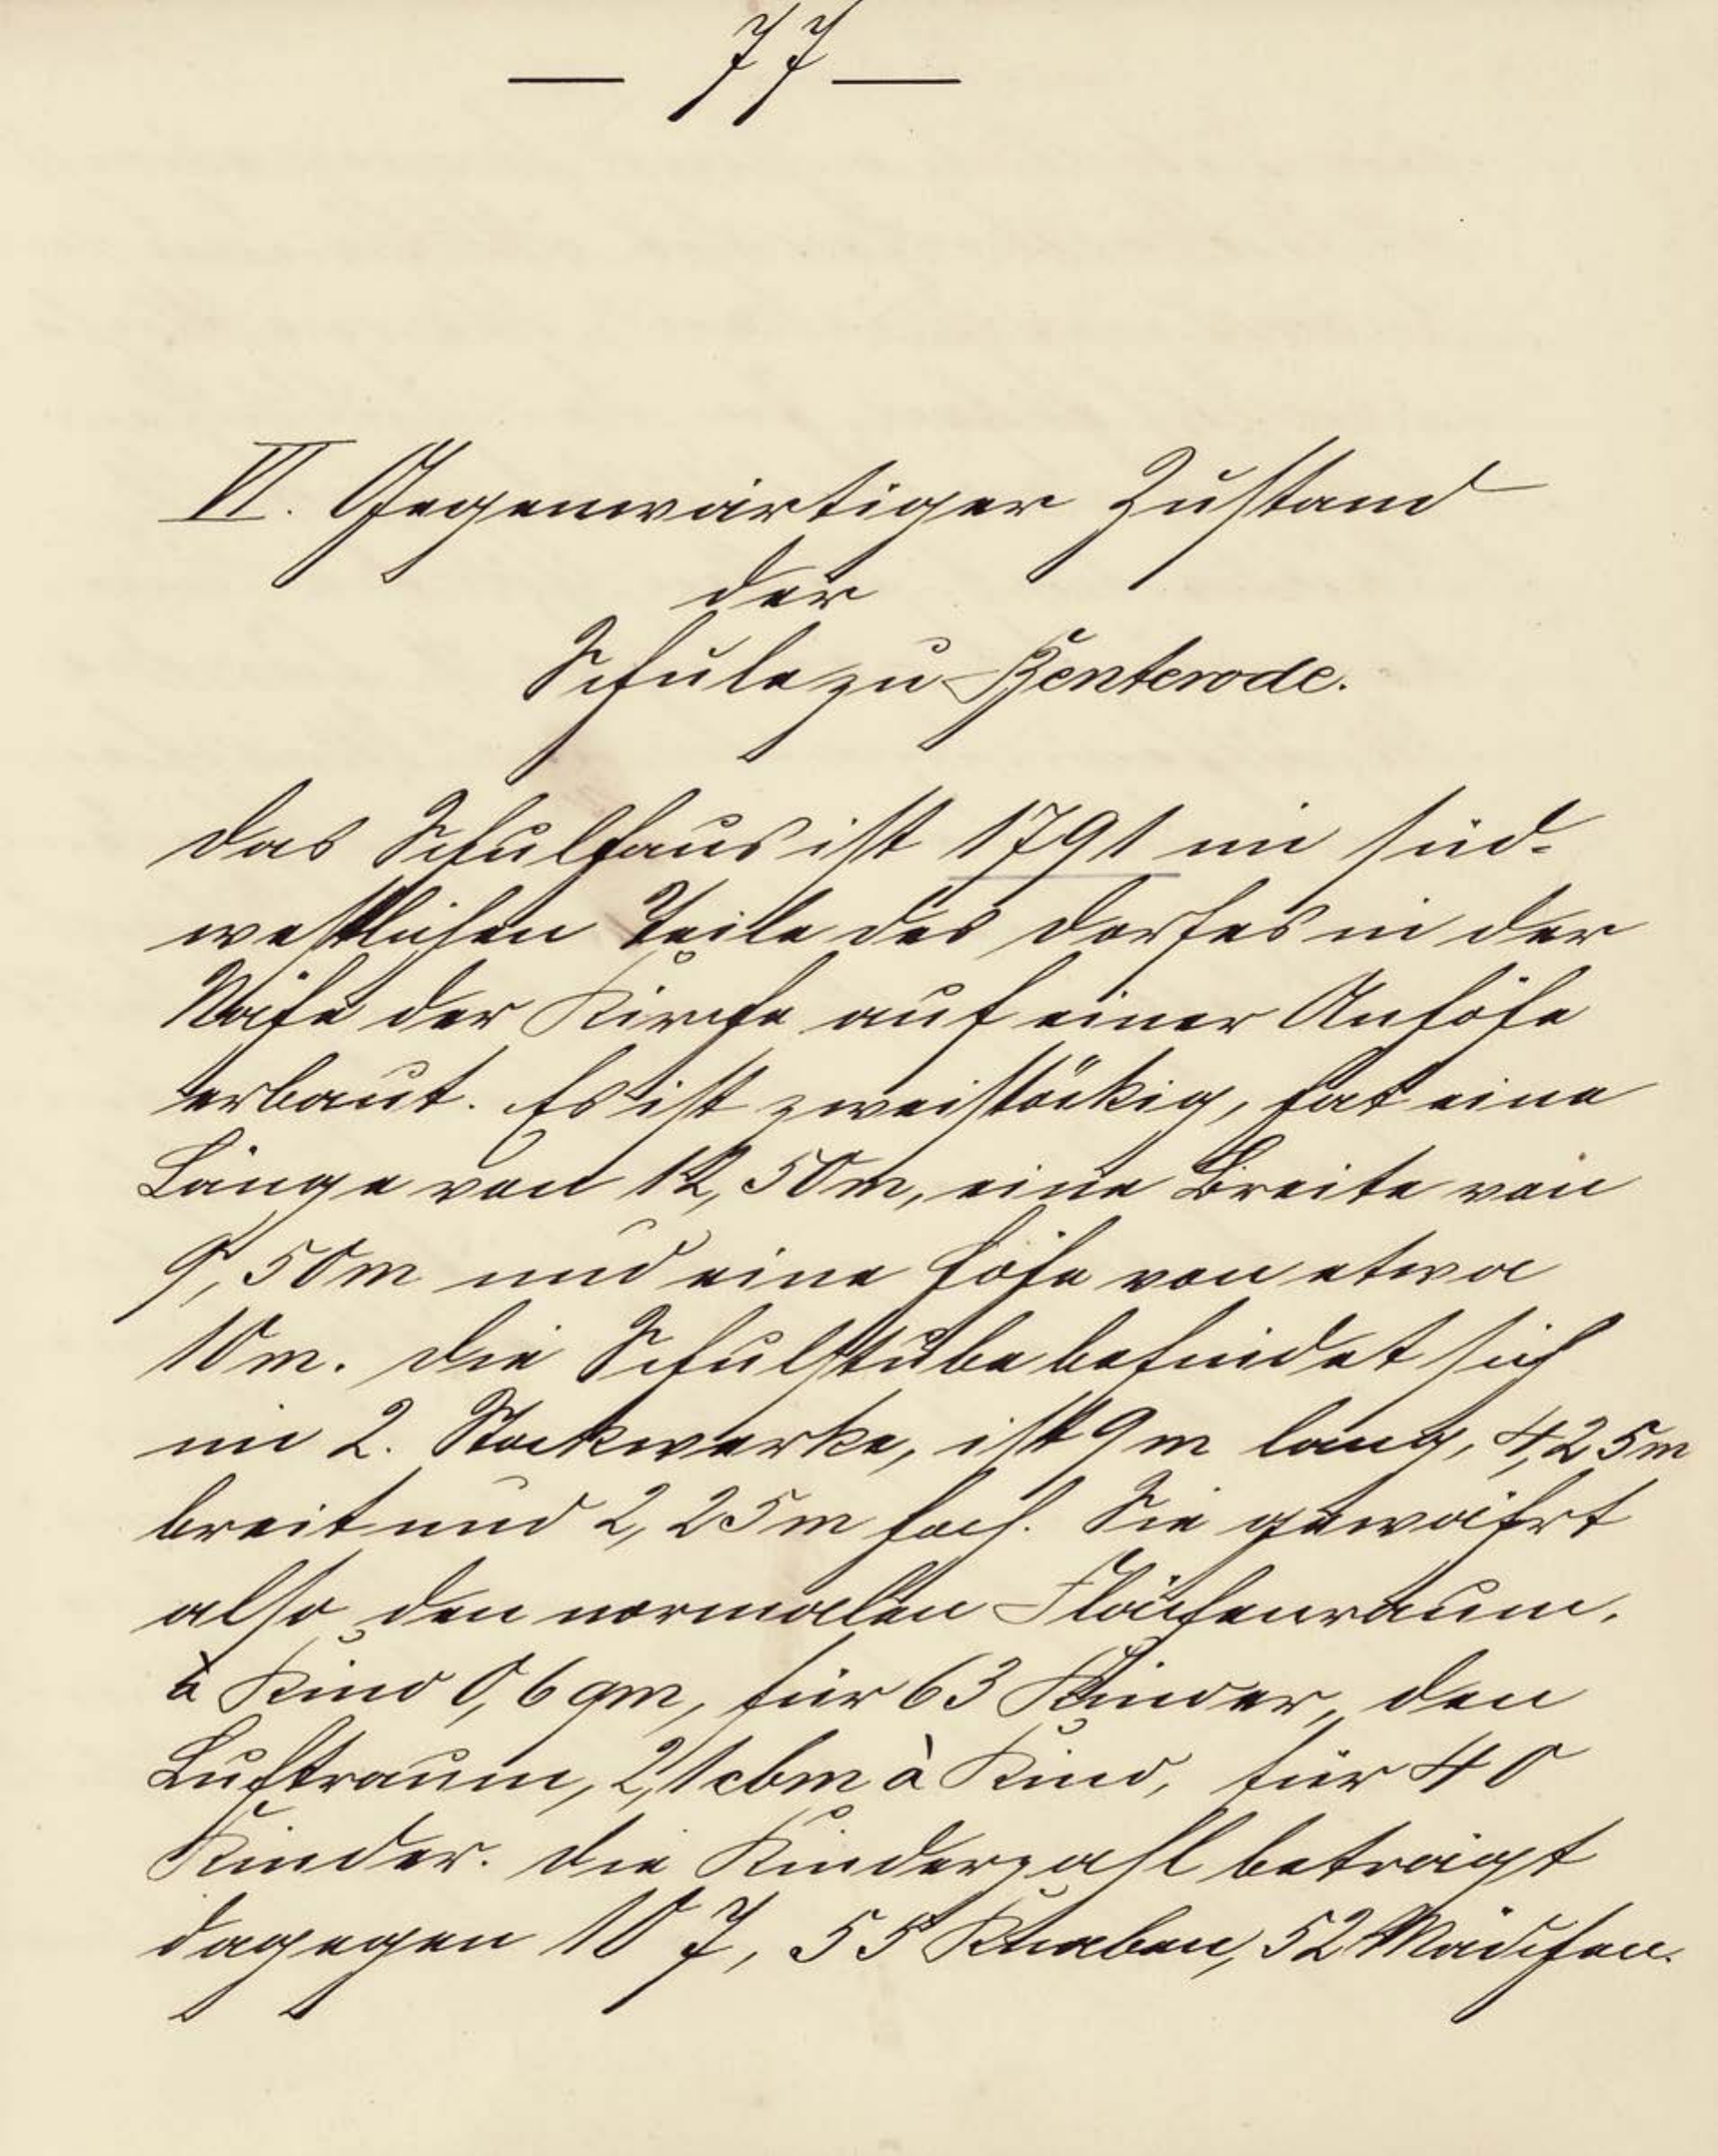 — 77 —
VI. Gegenwärtiger Zustand
der
Schule zu Benterode.
Das Schulhaus ist 1791 im süd-
westlichen Teile des Dorfes in der
Nähe der Kirche auf einer Anhöhe
erbaut. Es ist zweistöckig, hat eine
Länge von 12,50m, eine Breite von
9,50m und eine Höhe von etwa
10m. Die Schulstube befindet sich
im 2. Stockwerke, ist 9m lang, 4,25m
breit und 2,25m hoch. Sie gewährt
also den normalen Flächenraum,
à Kind 0,6qm, für 63 Kinder, den
Luftraum, 2,1cbm à Kind, für 40
Kinder. Die Kinderzahl beträgt
dagegen 107, 55 Knaben, 52 Mädchen.